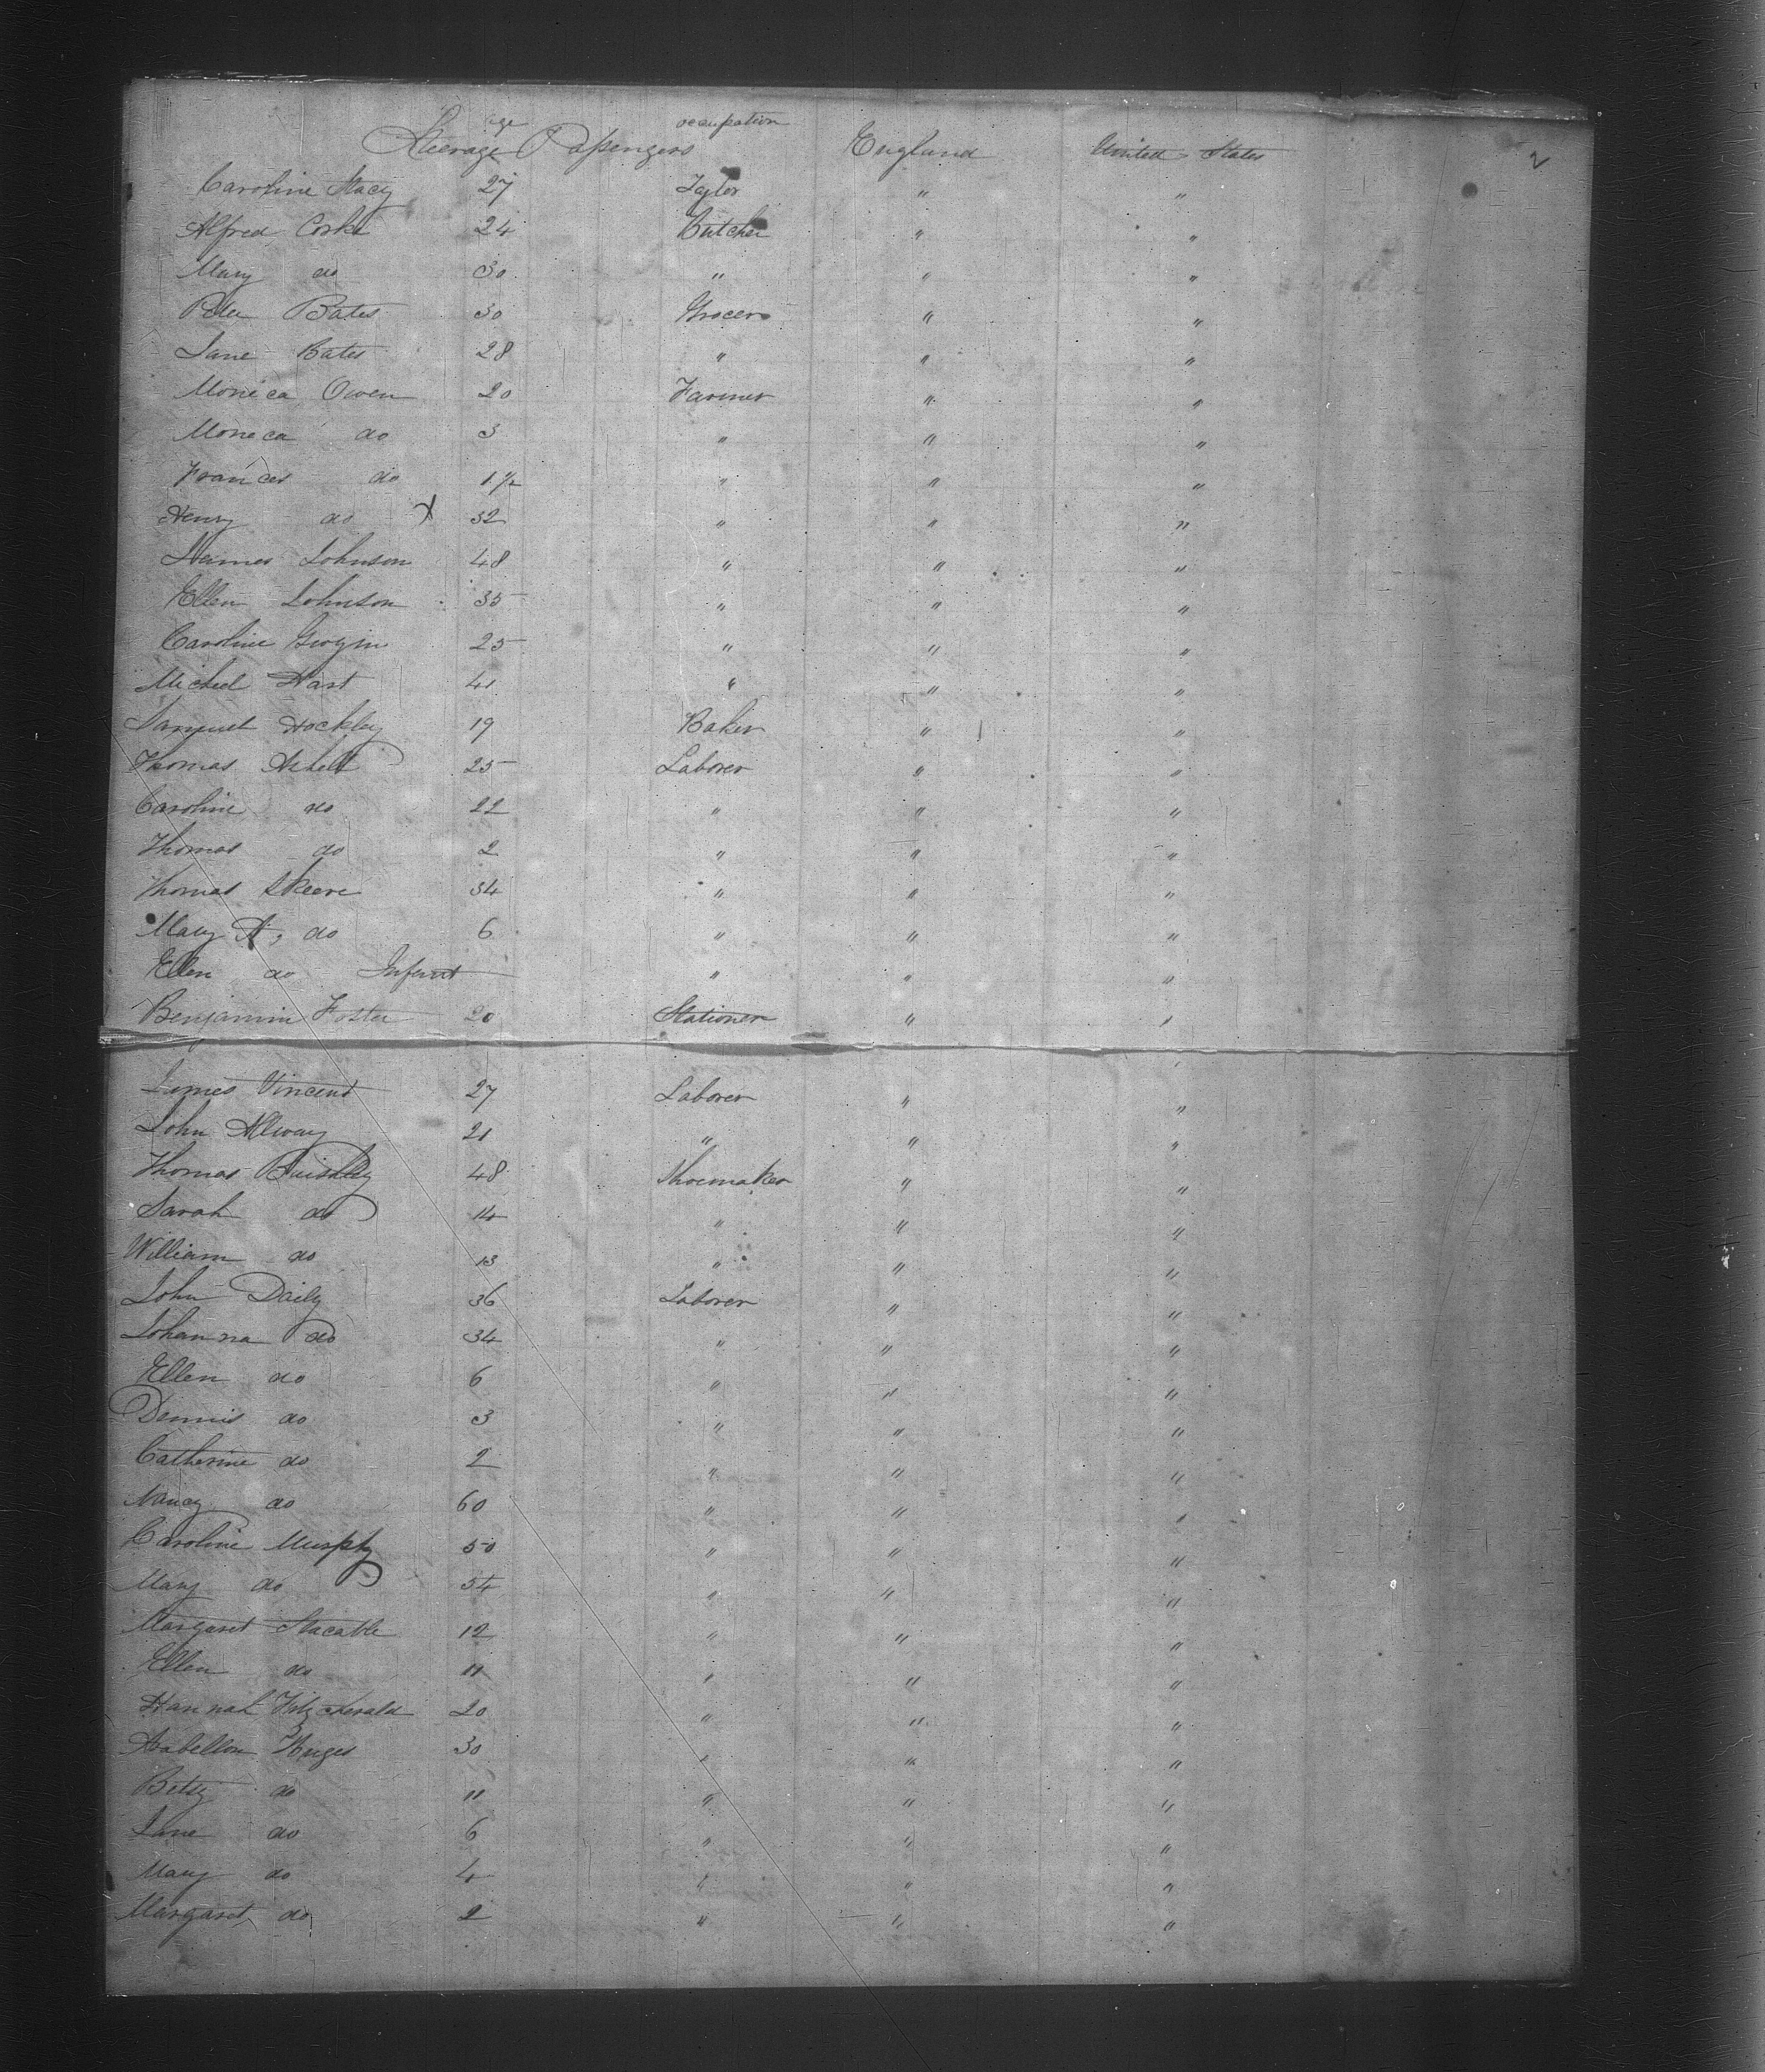 age occupation
Steerage Passengers England United States 2
Caroline Stacy 27 Tailor " "
Alfred Corke 24 Butcher " "
Mary do 30 " " "
Peter Bates 30 Grocer " "
Jane Bates 28 " " "
Monica Owen 20 Farmer " "
Moneca do 3 " " "
Frances do 1 1/2 " " "
Henry do X 32 " " "
James Johnson 48 " " "
Ellen Johnson 35 " " "
Caroline 25 " " "
Micheel Hart 41 " " "
Samuel Hockley 19 Baker " "
Thomas 25 Laborer " "
Caroline do 22 " " "
Thomas do 2 " " "
Thomas Skeere 34 " " "
Mary A, do 6 " " "
Ellen do Infant " " "
Benjamin Foster 20 Stationer " "
James Vincent 27 Laborer " "
John Allway 21 " " "
Thomas 48 Shoemaker " "
Sarah do 14 " " "
William do 13 " " "
John Daily 36 Laborer " "
Johanna do 34 " " "
Ellen do 6 " " "
Dennis do 3 " " "
Catherine do 2 " " "
Nancy do 60 " " "
Caroline Murphy 50 " " "
Mary do 54 " " "
Margaret Stacable 12 " " "
Ellen do 11 " " "
Hannah Fitzcherald 20 " " "
Arabellon Huges 30 " " "
Betsy do 11 " " "
Jane do 6 " " "
Mary do 4 " " "
Margaret do 2 " " "